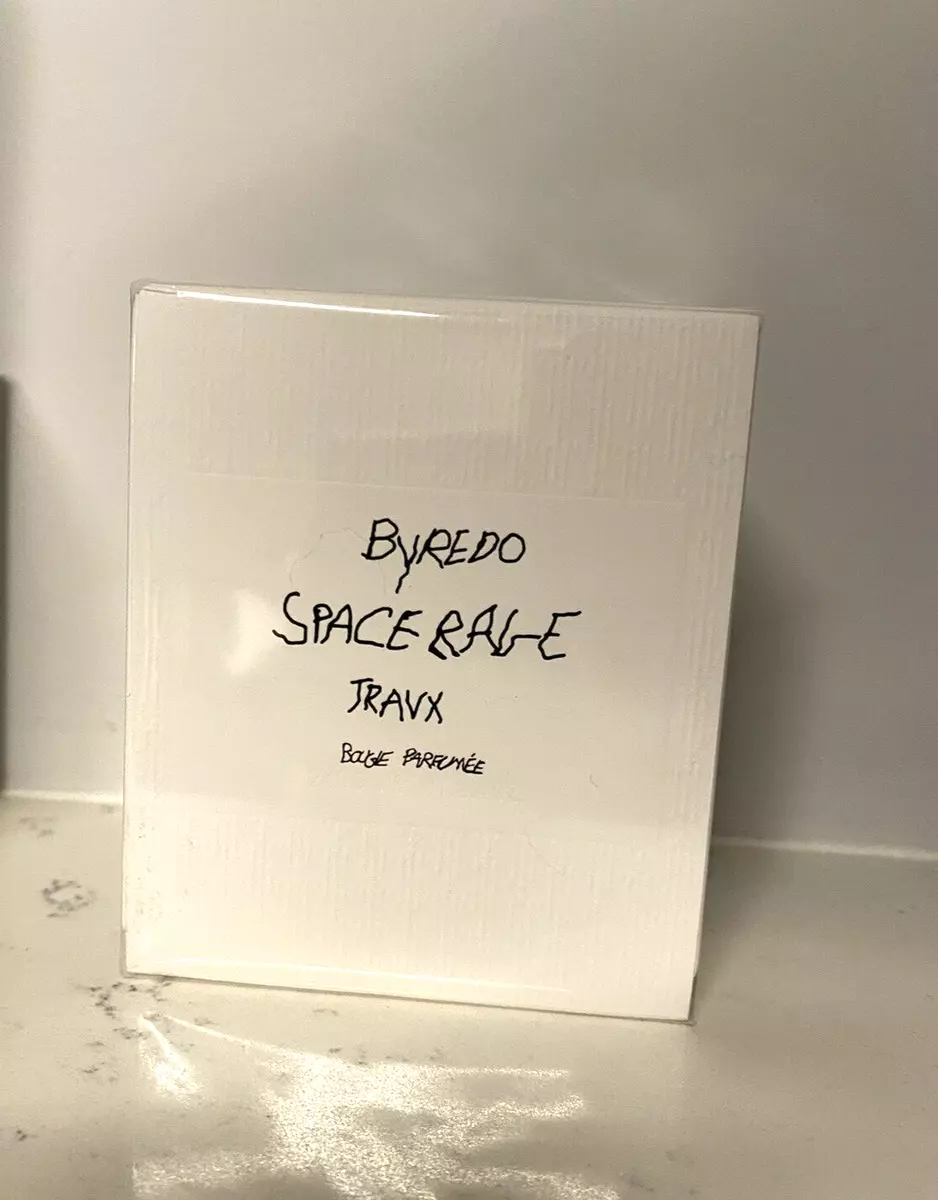 BYREDO
SPACE RAGE
TRAVX
BOUGIE PARFUMÉE